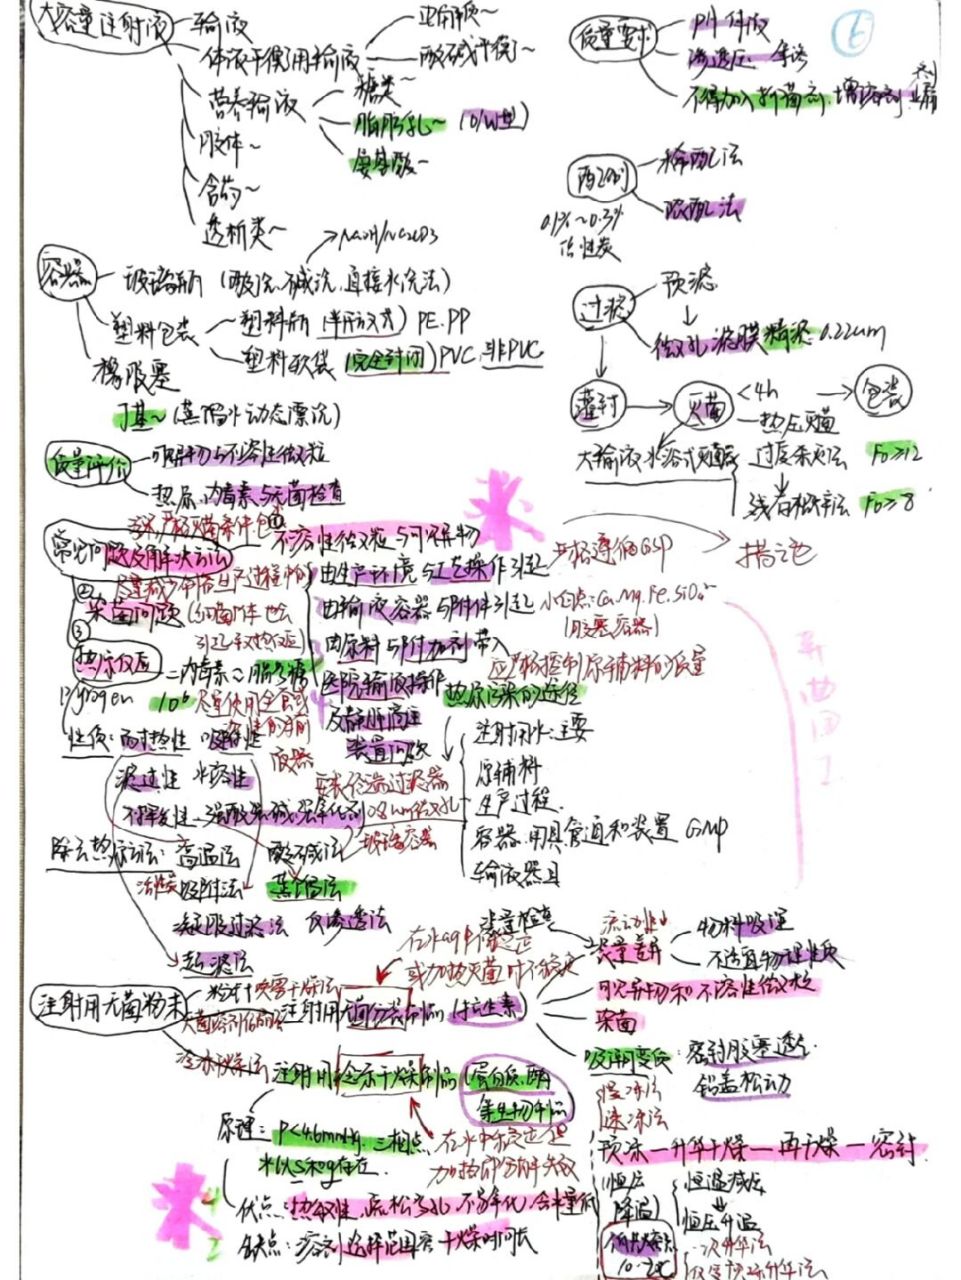 大容量注射液
输液
体液平衡用输液
电解质~
酸碱平衡~
营养输液
糖类~
脂肪乳~ (O/W型)
氨基酸~
胶体~
含药~
透析类~
质量要求
6
PH 体液
渗透压 等渗
不得加入抑菌剂. 增溶剂
配制
稀配法
浓配法
0.1%~0.3%
活性炭
容器
NaOH/Na2CO3
玻璃瓶 (酸洗.碱洗.直接水洗法)
塑料包装
塑料瓶 (半开放式) PE.PP
塑料软袋 (完全封闭) PVC 非PVC
橡胶塞
丁基~ (蒸馏水动态漂洗)
过滤
预滤
微孔滤膜精滤 0.22um
灌封
灭菌
<4h
包装
热压灭菌
大输液水浴式灭菌器
过度杀灭法 F0≥12
残存概率法 F0≥8
质量评价
可见异物与不溶性微粒
热原.内毒素与无菌检查
常见问题及解决方法
①
不溶性微粒与可见异物
由生产环境与工艺操作引起
严格遵循GMP
措施
由输液容器与附件引起
小白点:Ca.Mg.Fe.SiO
(胶塞容器)
由原料与附加剂带入
应严格控制原辅料的质量
医院输液操作
及静脉滴注
装置问题
②
染菌问题
尽量减少制备生产过程中的
③
热原反应
=内毒素=脂多糖
pyrogen
10⁶
尽量使用全套或
液器
热原污染的途径
注射用水:主要
原辅料
生产过程.
容器.用具.管道和装置 GMP
输液器具
性质: 耐热性 吸附性
滤过性 水溶性
不挥发性 强酸强碱.强氧化剂
除去热原方法: 高温法 酸碱法
活性炭 吸附法 蒸馏法
凝胶过滤法 反渗透法
超滤法
注射用无菌粉末
喷雾干燥法
注射用无菌分装制品 (抗生素)
在水中不稳定
或加热灭菌时不稳定
装量差异
流动性
物料吸湿
不适宜物理性质
可见异物和不溶性微粒
染菌
吸潮变质: 密封胶塞透气.
铝盖松动
冷冻干燥法
注射用冷冻干燥制品
(蛋白质.酶
等生物制品)
原理: P<4.6mmHg 三相点
水以s和g存在.
在水中不稳定
加热即分解失效
优点: 热敏性.疏松多孔.不易氧化.含水量低
缺点: 溶剂选择范围窄 干燥时间长
慢冻法
速冻法
预冻—升华干燥—再干燥—密封
恒压
降温
恒温减压
恒压升温
一次升华法
反复预冻升华法
低共熔点
10-20℃